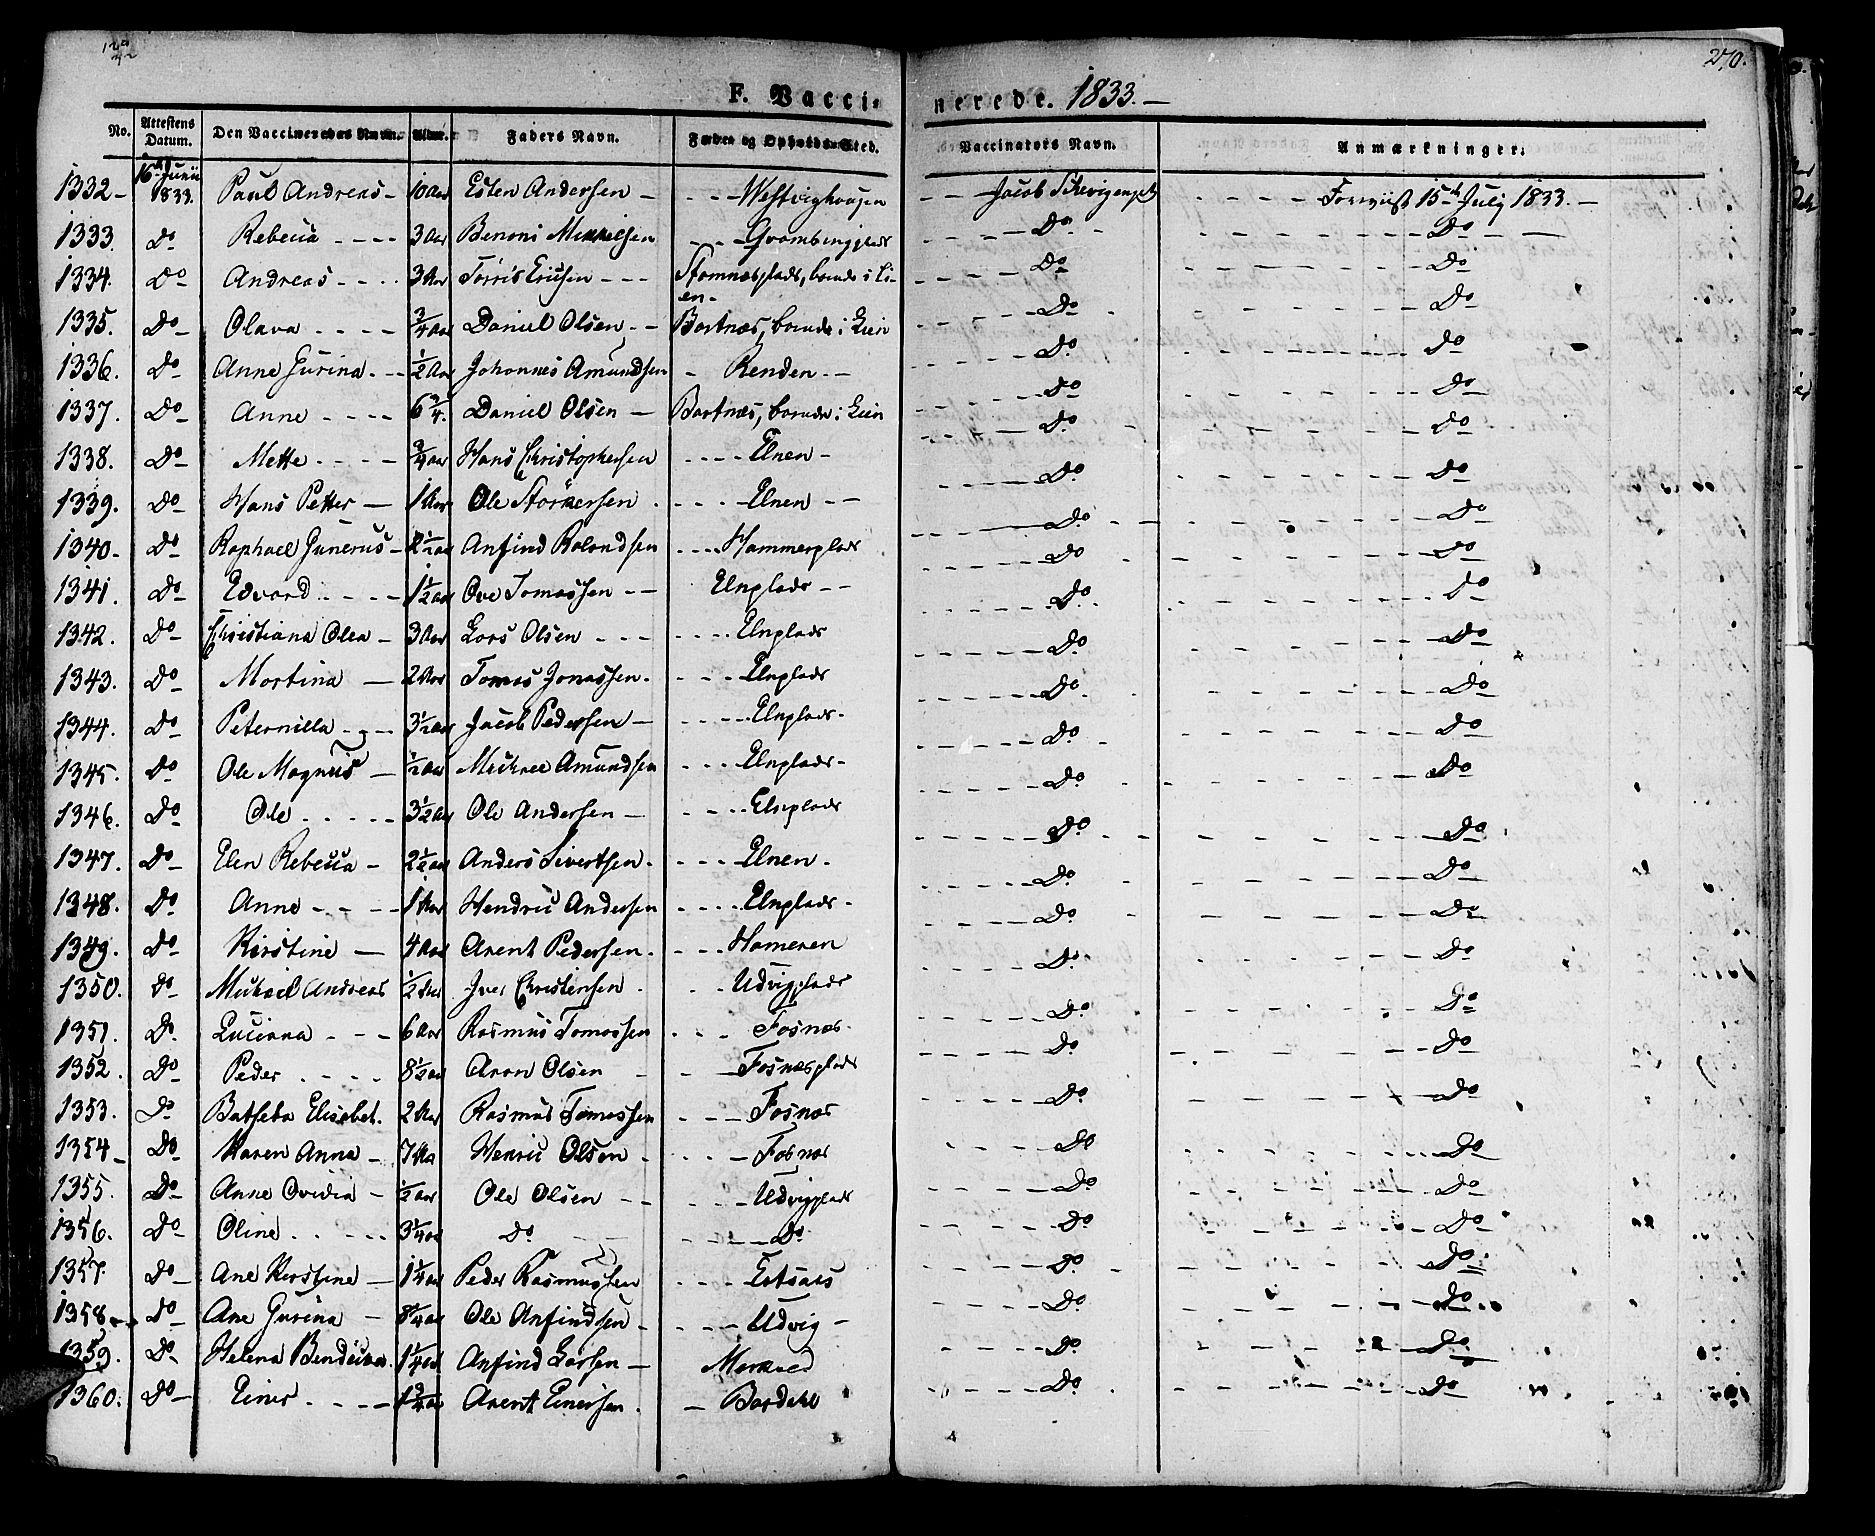 270.
F. Vaccinerede. 1833. —
No. Attestens Datum. Den Vaccineredes Navn. Alder. Faders Navn. Fødes og Opholds-Sted. Vaccinators Navn. Anmærkninger.
1332 - 16de Junii 1833. Paul Andreas - 10 Aar Esten Andersen - - - Jacob - - - - 15de July 1833. —
1333. Do Rebecca - - - - 3 Aar Benoni Mikkelsen - - - Do - - - - Do
1334. Do Andreas - - - - 3 Aar Torris Ericsen - - - Stamnesplads, boende i Li-en - Do - - - - Do
1335. Do Olava - - - - 3/4 Aar Daniel Olsen - - Bartnæs, boende i Lien Do - - - - Do
1336. Do Anne Gurina - - 1/2 Aar Johannes Amundsen - Renden - - Do - - - - Do
1337. Do Anne - - - - 6 3/4. Daniel Olsen - Bartnæs, boende i Lien Do - - - - Do
1338. Do Mette - - - - 3/4 Aar Hans Christophersen - - - - Elnen - Do - - - - Do
1339. Do Hans Petter - 1 Aar Ole Storkersen - - - Elnen - - Do - - - - Do
1340. Do Raphael Gunerus - 2 1/2 Aar Anfind Rolandsen - - - - Hammerplads Do - - - - Do
1341. Do Edvard - - - - 1 1/2 Aar Ove Tomassen - - Elnplads - - Do - - - - Do
1342. Do Christiana Olea - 3 Aar Lars Olsen - - - - - - - Elnplads Do - - - - Do
1343. Do Martina - 2 Aar Tomas Jonassen - - - - Elnplads Do - - - - Do
1344. Do Peternilla - - - 3 1/2 Aar Jacob Pedersen - - - - - Elnplads - Do - - - - Do
1345. Do Ole Magnus - 1/2 Aar Mickael Amundsen - - - Elnplads - Do - - - - Do
1346. Do Ole - - - - 3 1/2 Aar Ole Andersen - - - - - Elnplads Do - - - - Do
1347. Do Elen Rebecca - 2 1/2 Aar Anders Sivertsen - - - - - Elnen - Do - - - - Do
1348. Do Anne - - - - 1 Aar Hendric Andersen - - - - Elnplads - Do - - - - Do
1349. Do Kirstine - 4 Aar Arent Pedersen - - - - Hameren Do - - - - Do
1350. Do Mickael Andreas 1/2 Aar Iver Christensen - - - - Udvigplads Do - - - - Do
1351. Do Luciana - - - 6 Aar Rasmus Tomassen - - - Fosnæs - Do - - - - Do
1352. Do Peder - - - - 8 1/2 Aar Aron Olsen - - - Fosnæsplads Do - - - - Do
1353. Do Batseba Elisabet. 2 Aar Rasmus Tomassen - - - Fosnæs Do - - - - Do
1354 - Do Karen Anna - 7 Aar Henric Olsen - - - - - Fosnæs Do - - - - Do
1355. Do Anne Ovidia - 1/2 Aar Ole Olsen - - - - - Udvigplads Do - - - - Do
1356. Do Oline - - - - 3 1/4 Aar Do - - - - Do Do - - - - Do
1357. Do Ane Kirstine - 1 1/4 Aar Peder Rasmussen - - - Do - - - - Do
1358. Do Ane Gurina - 8 1/4 Aar Ole Anfindsen - - - - Udvig - Do - - - - Do
1359. Do Helena 1 1/4 Aar Anfind Larsen - Do - - - - Do
1360. Do Einer - - - - 1 3/4 Aar Arent Einersen - - Bardahl Do - - - - Do